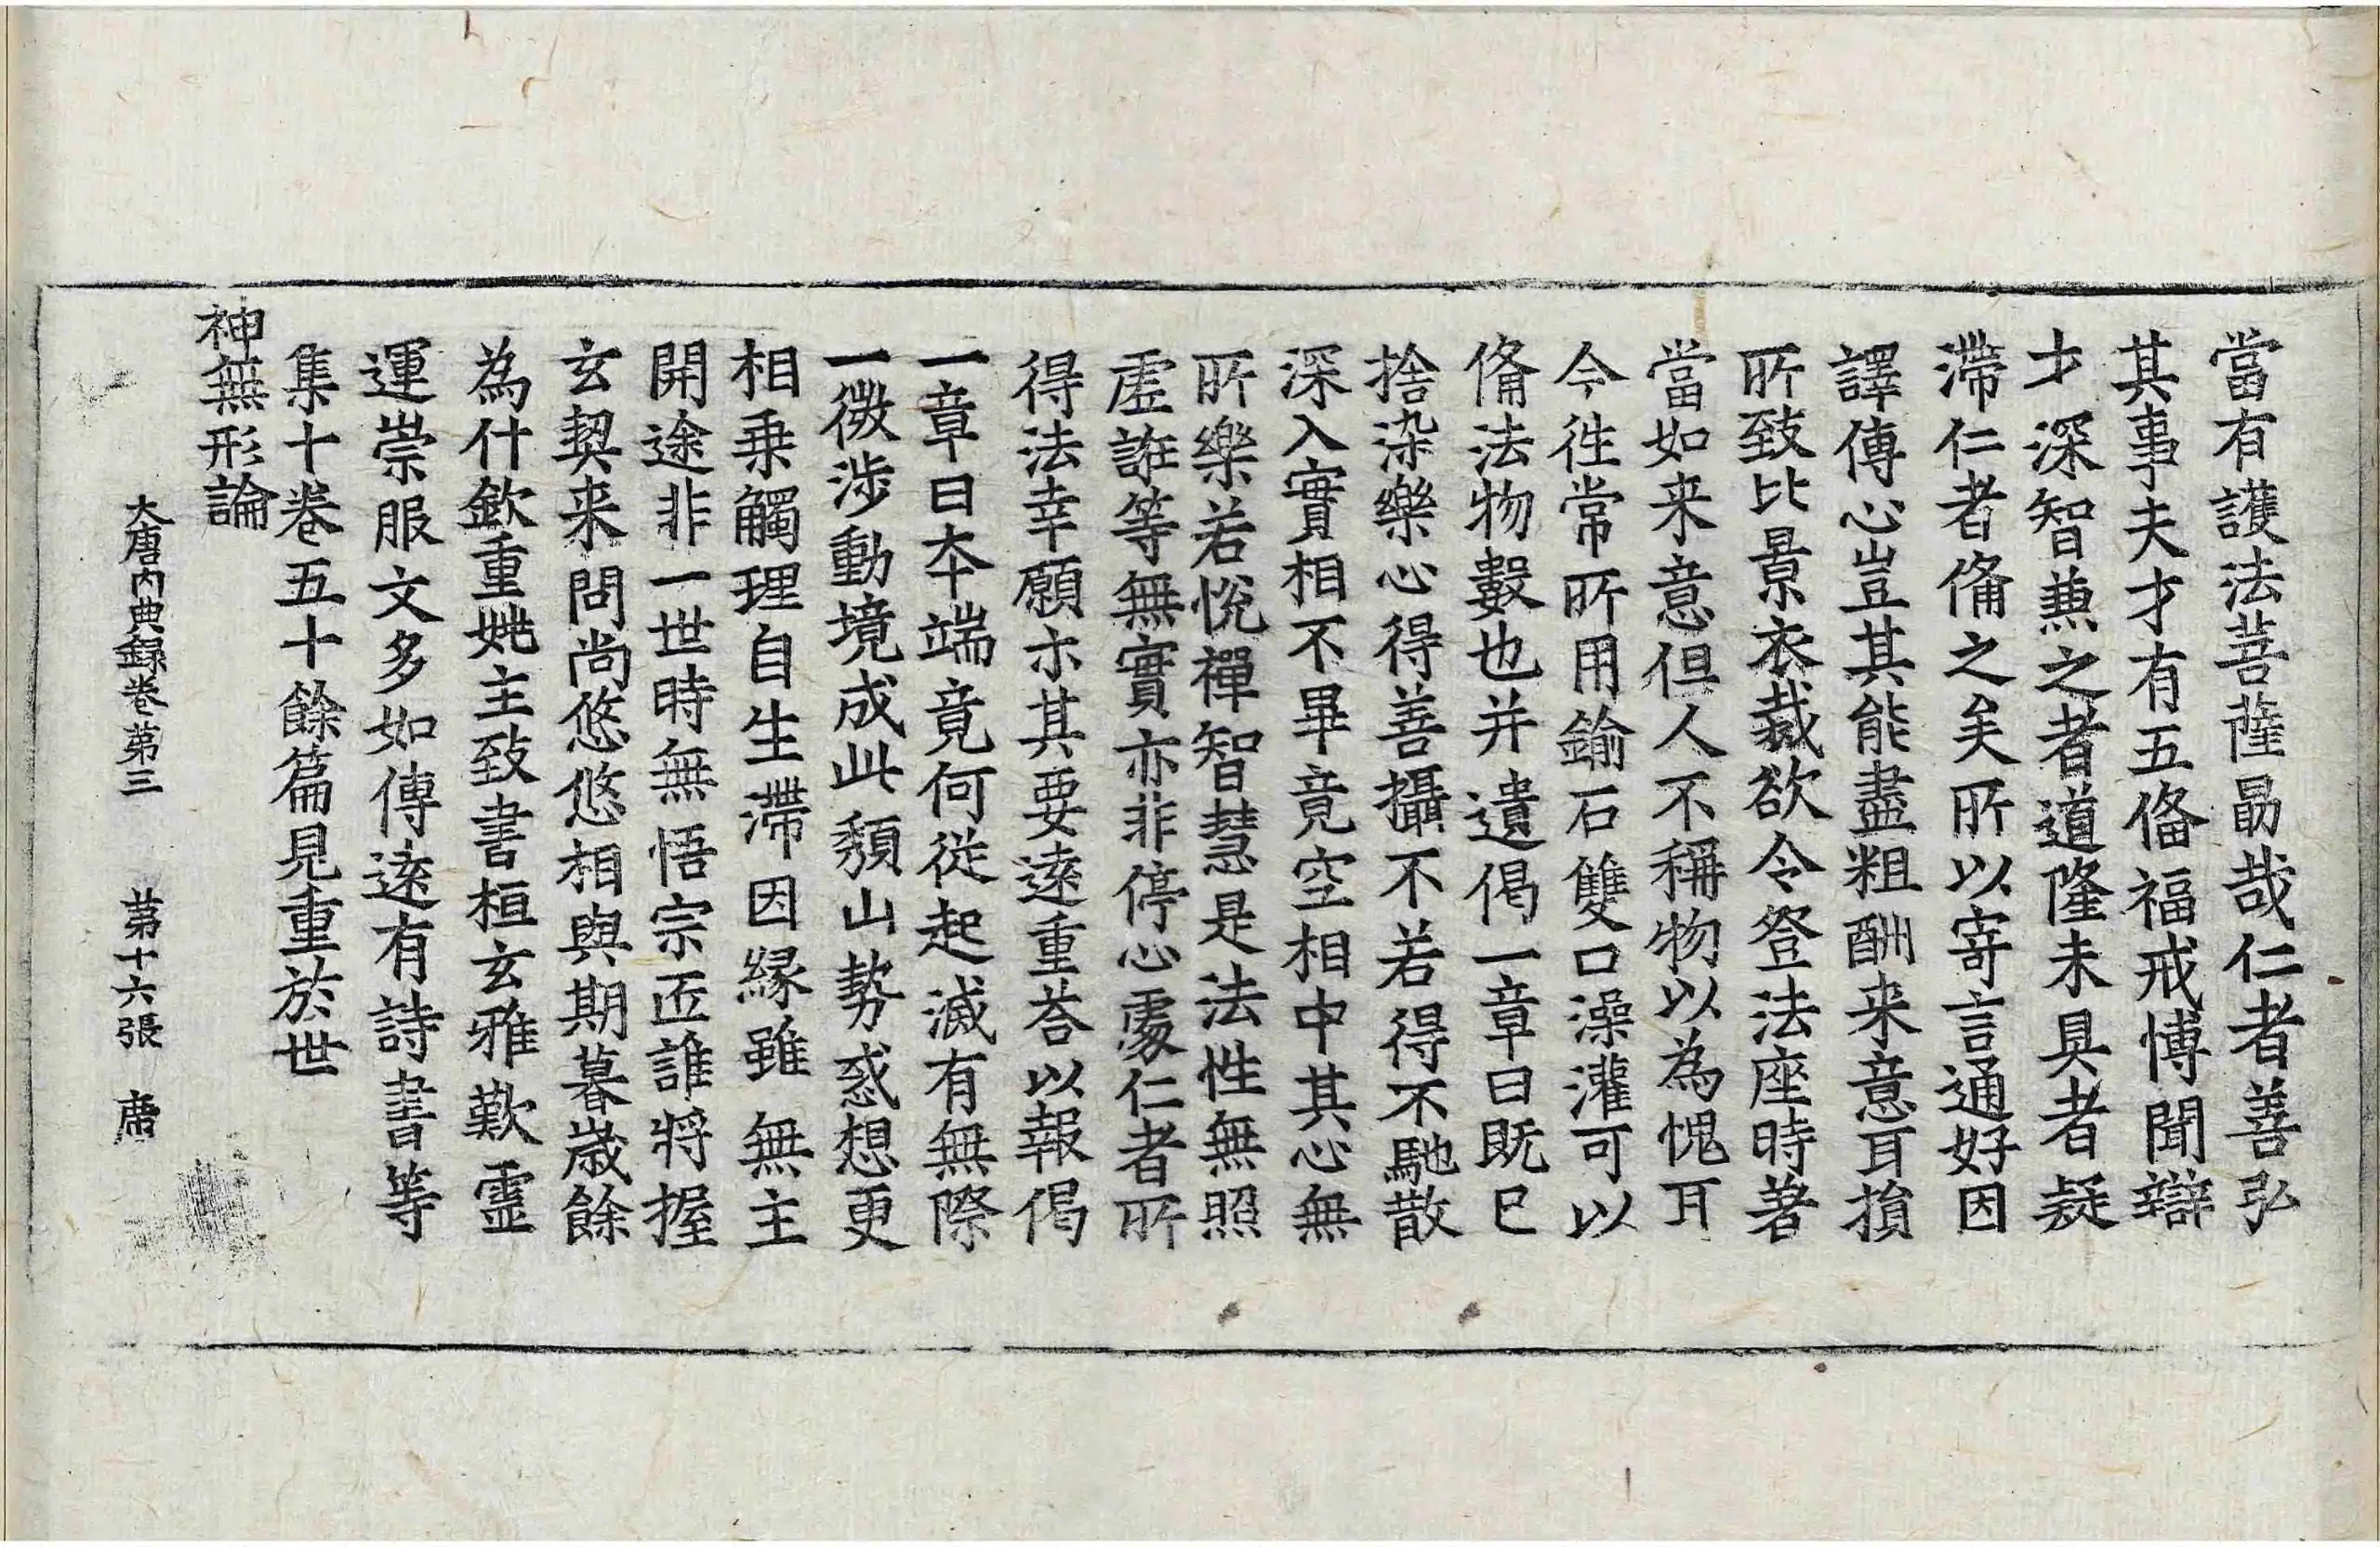 當有護法菩薩勗哉仁者善弘
其事夫才有五俻福戒博聞辯
才深智兼之者道隆未具者疑
滯仁者俻之矣所以寄言通好因
譯傳心豈其能盡粗酬来意耳損
所致比景衣裁欲令登法座時著
當如来意但人不稱物以為愧耳
今往常所用鍮石雙口澡灌可以
俻法物數也并遺偈一章曰既已
捨染樂心得善攝不若得不馳散
深入實相不畢竟空相中其心無
所樂若悅禪智慧是法性無照
虛誑等無實亦非停心處仁者所
得法幸願示其要遠重荅以報偈
一章曰本端竟何從起滅有無際
一微涉動境成此頹山勢惑想更
相乗觸理自生滯因緣雖無主
開途非一世時無悟宗匠誰將握
玄契来問尚悠悠相與期暮歲餘
為什欽重姚主致書桓玄雅歎靈
運崇服文多如傳遠有詩書等
集十卷五十餘篇見重於世
神無形論
大唐內典録卷第三 第十六張 席